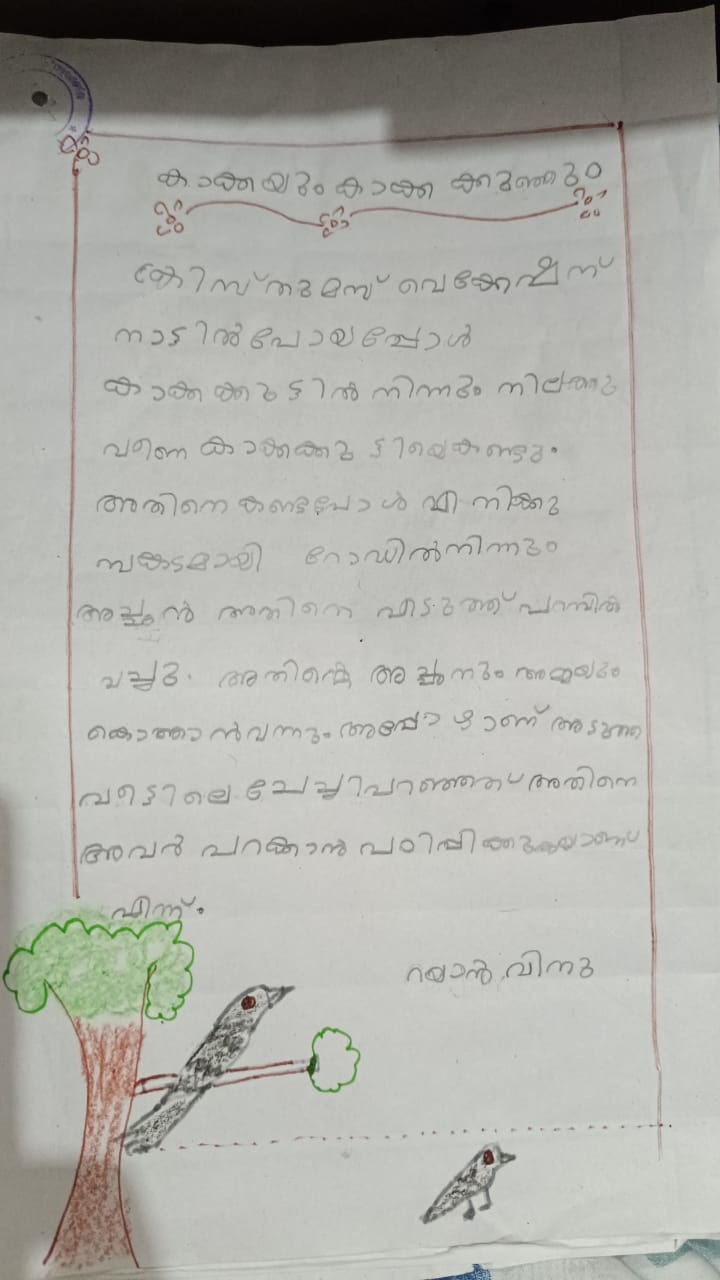 കാക്കയും കാക്ക ക്കുഞ്ഞും
ക്രിസ്തുമസ് വെക്കേഷന്
നാട്ടിൽ പോയപ്പോൾ
കാക്കക്കൂട്ടിൽ നിന്നും നിലത്തു
വീണ കാക്കക്കു ട്ടിയെകണ്ടും.
അതിനെ കണ്ടപോൾ എനിക്കു
സങ്കടമായി റോഡിൽനിന്നും
അച്ഛൻ അതിനെ എടുത്ത് പറമ്പിൽ
വച്ചു. അതിന്റെ അച്ഛനും അമ്മയും
കൊത്താൻവന്നും. അപ്പോഴാണ് അടുത്ത
വീട്ടിലെ ചേച്ചി പറഞ്ഞത് അതിനെ
അവർ പറക്കാൻ പഠിപ്പിക്കുകയാണ്
എന്ന്.
റയാൻ വിനു